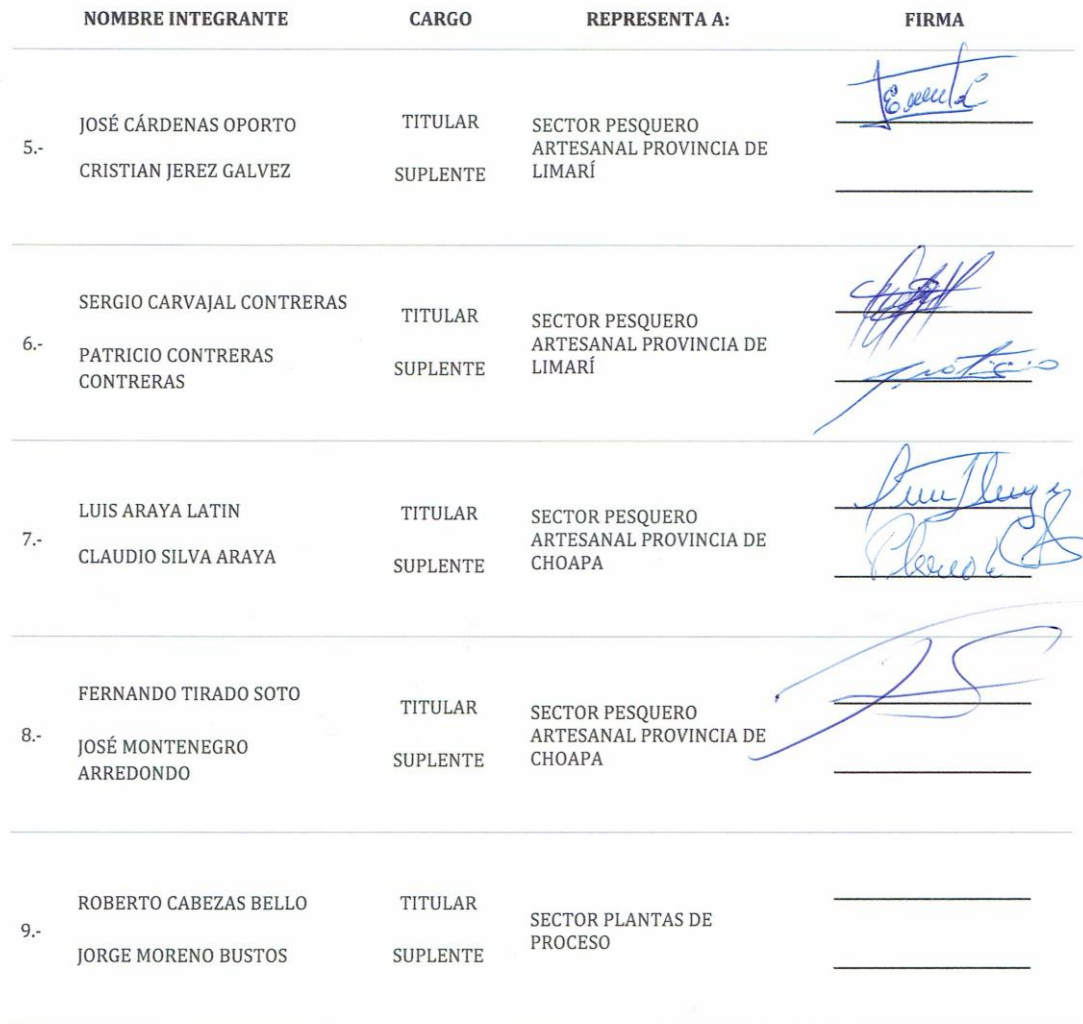 NOMBRE INTEGRANTE CARGO REPRESENTA A: FIRMA
5.-
JOSÉ CÁRDENAS OPORTO TITULAR
CRISTIAN JEREZ GALVEZ SUPLENTE
SECTOR PESQUERO
ARTESANAL PROVINCIA DE
LIMARÍ
6.-
SERGIO CARVAJAL CONTRERAS TITULAR
PATRICIO CONTRERAS
CONTRERAS
SUPLENTE
SECTOR PESQUERO
ARTESANAL PROVINCIA DE
LIMARÍ
7.-
LUIS ARAYA LATIN TITULAR
CLAUDIO SILVA ARAYA SUPLENTE
SECTOR PESQUERO
ARTESANAL PROVINCIA DE
CHOAPA
8.-
FERNANDO TIRADO SOTO TITULAR
JOSÉ MONTENEGRO
ARREDONDO
SUPLENTE
SECTOR PESQUERO
ARTESANAL PROVINCIA DE
CHOAPA
9.-
ROBERTO CABEZAS BELLO TITULAR
JORGE MORENO BUSTOS SUPLENTE
SECTOR PLANTAS DE
PROCESO